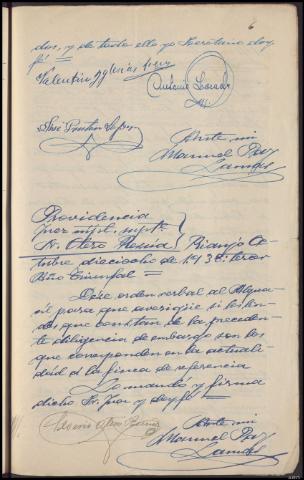 6
dos, y de todo ello yo Secretario doy
fé =
Valentin Iglesias
Antonio
José
Ante mi
Manuel Rey
Providencia
Juez mpal. supte.
Sr. Otero Rosiña
Rianjo Oc-
tubre dieciocho de 1938 tercer
Año Triunfal =
Dése orden verbal al Algua-
cil para que averigüe si los lin-
des que constan de la preceden-
te diligencia de embargo son los
que corresponden en la actuali-
dad a la finca de referencia
Lo mandó y firma
dicho Sr. Juez y doy fé =
Ante mi
Manuel Rey